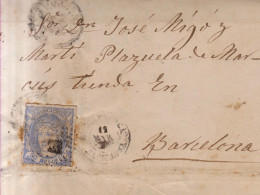 Sor Dn José Migó y
Martí Plazuela de Mar-
cús tienda En
Barcelona